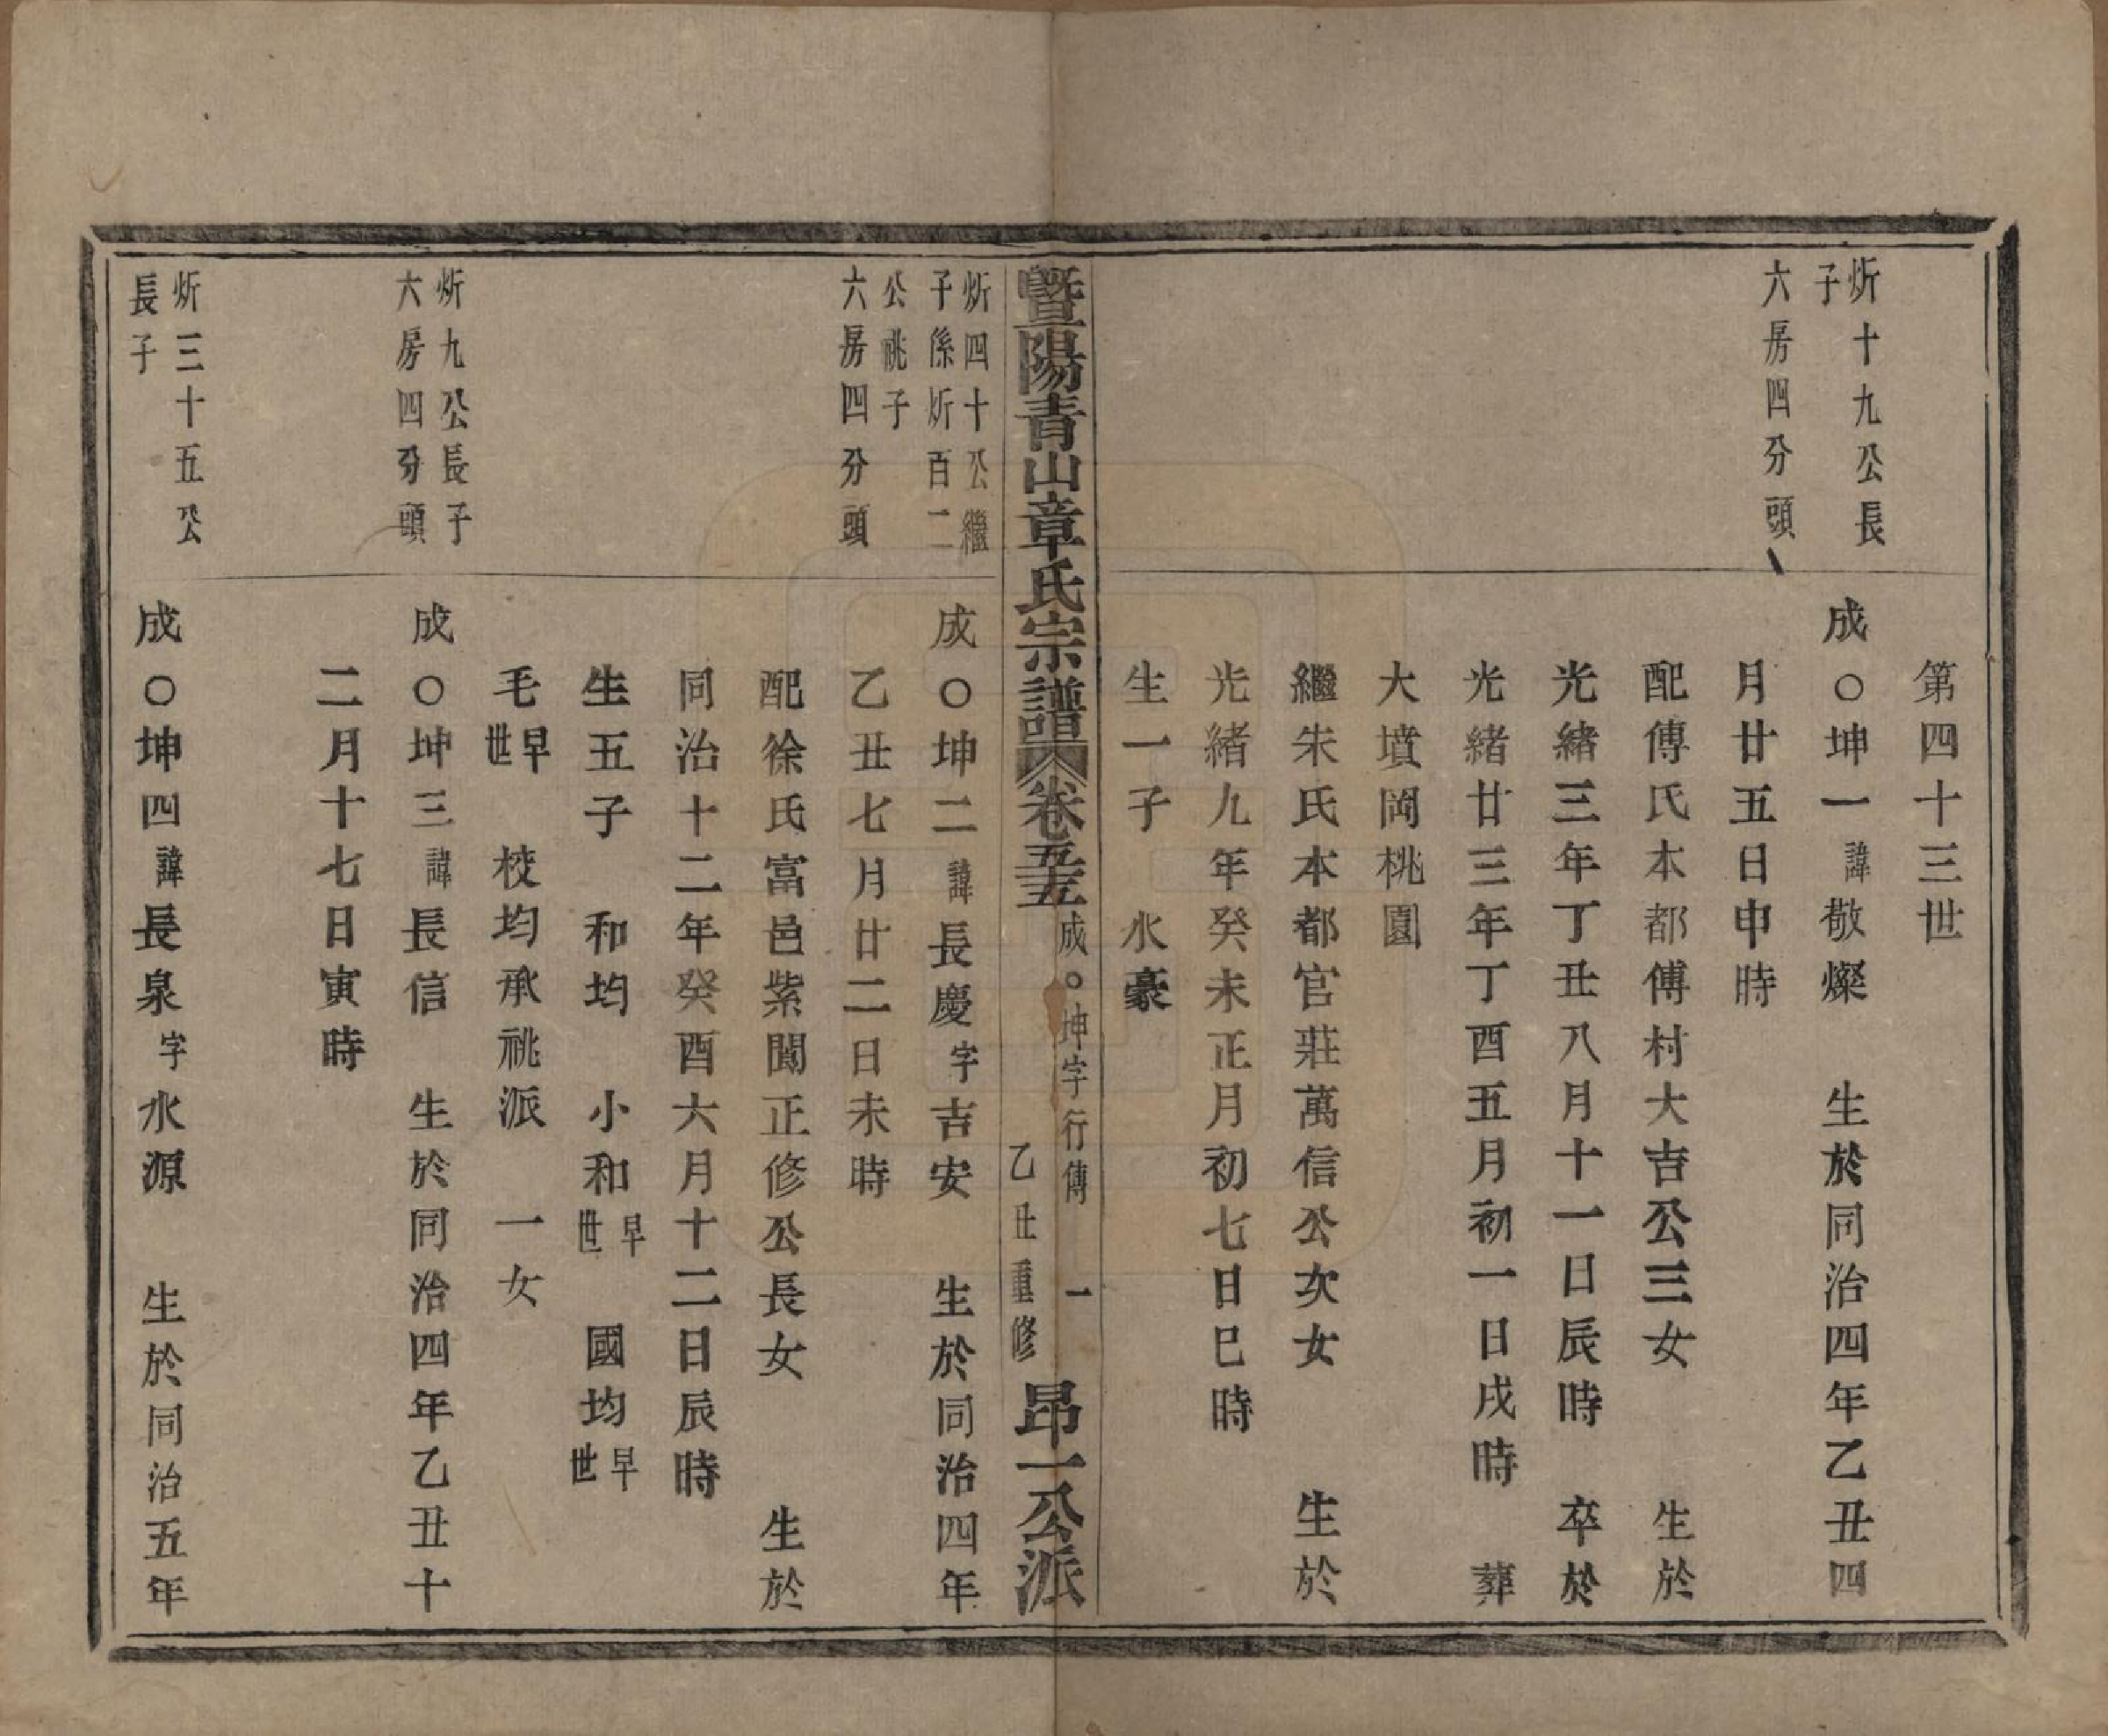 第四十三世
炘十九公長
子
六房四分頭
成○坤一諱敬燦　生於同治四年乙丑四
月廿五日申時
配傅氏本都傅村大吉公三女　生於
光緒三年丁丑八月十一日辰時　卒於
光緒廿三年丁酉五月初一日戌時　葬
大墳岡桃園
繼朱氏本都官莊萬信公次女　生於
光緒九年癸未正月初七日巳時
生一子　水豪
暨陽青山章氏宗譜　卷五五　成○坤字行傳　一　乙丑重修　昂一公派
炘四十公繼
子係炘百二
公祧子
六房四分頭
成○坤二諱長慶字吉安　生於同治四年
乙丑七月廿二日未時
配徐氏富邑紫閬正修公長女　生於
同治十二年癸酉六月十二日辰時
生五子　和均　小和早世　國均早世
毛早世　校均承祧派　一女
炘九公長子
六房四分頭
成○坤三諱長信　生於同治四年乙丑十
二月十七日寅時
炘三十五公
長子
成○坤四諱長泉字水源　生於同治五年